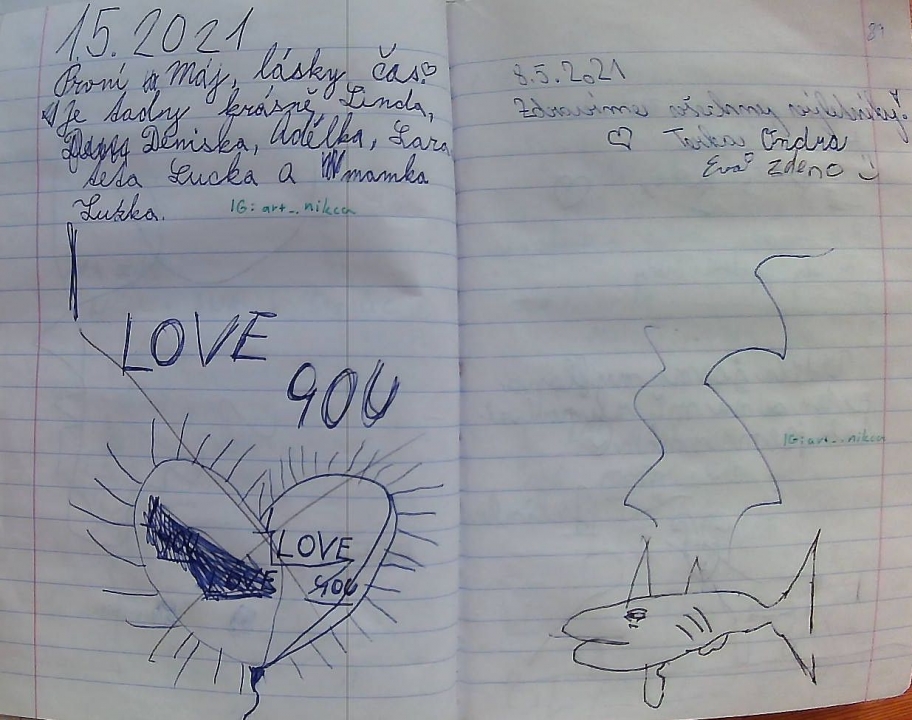 1.5.2021
První Máj, lásky čas♡
Je tadny krásně, Linda,
Deniska, Adélka, Lara
teta Lucka a mamka
Luzka.
IG: art_.nikca
LOVE
YOU
LOVE
YOU
OVE
81
8.5.2021
Zdravíme všechny výletníky.
♡ Terka Ondra
Eva Zdeno :)
IG: art_.nikca